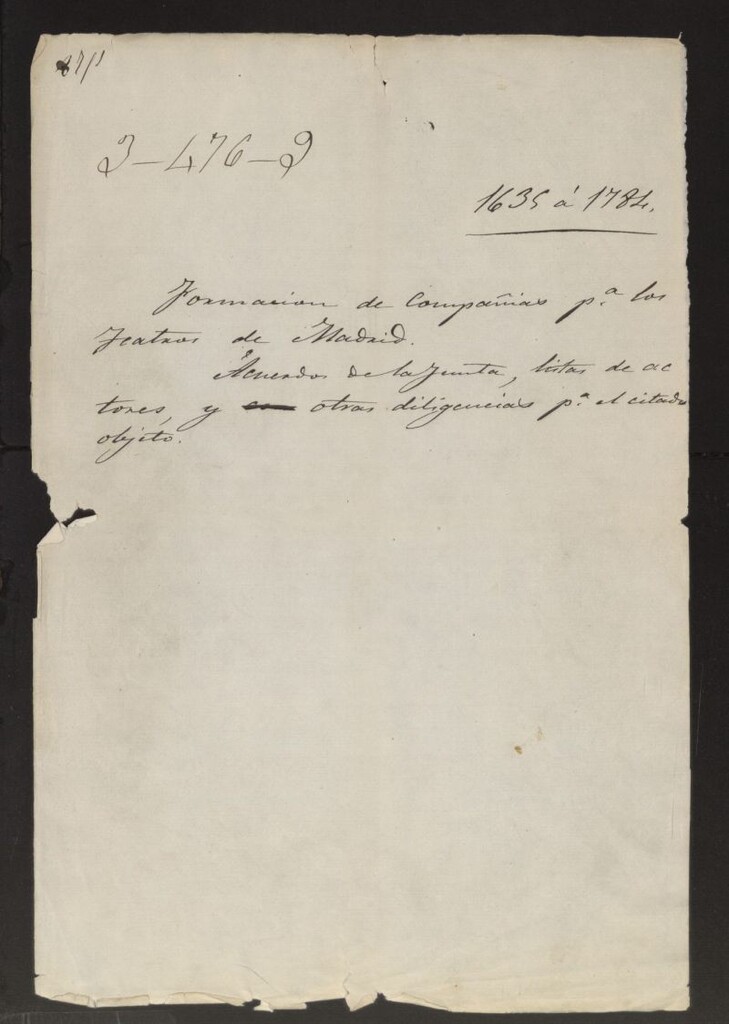 3-476-9
1635 á 1784.
Formacion de Compañias p.ª los
Teatros de Madrid.
Acuerdos de la Junta, listas de ac
tores, y otras diligencias p.ª el citado
objeto.